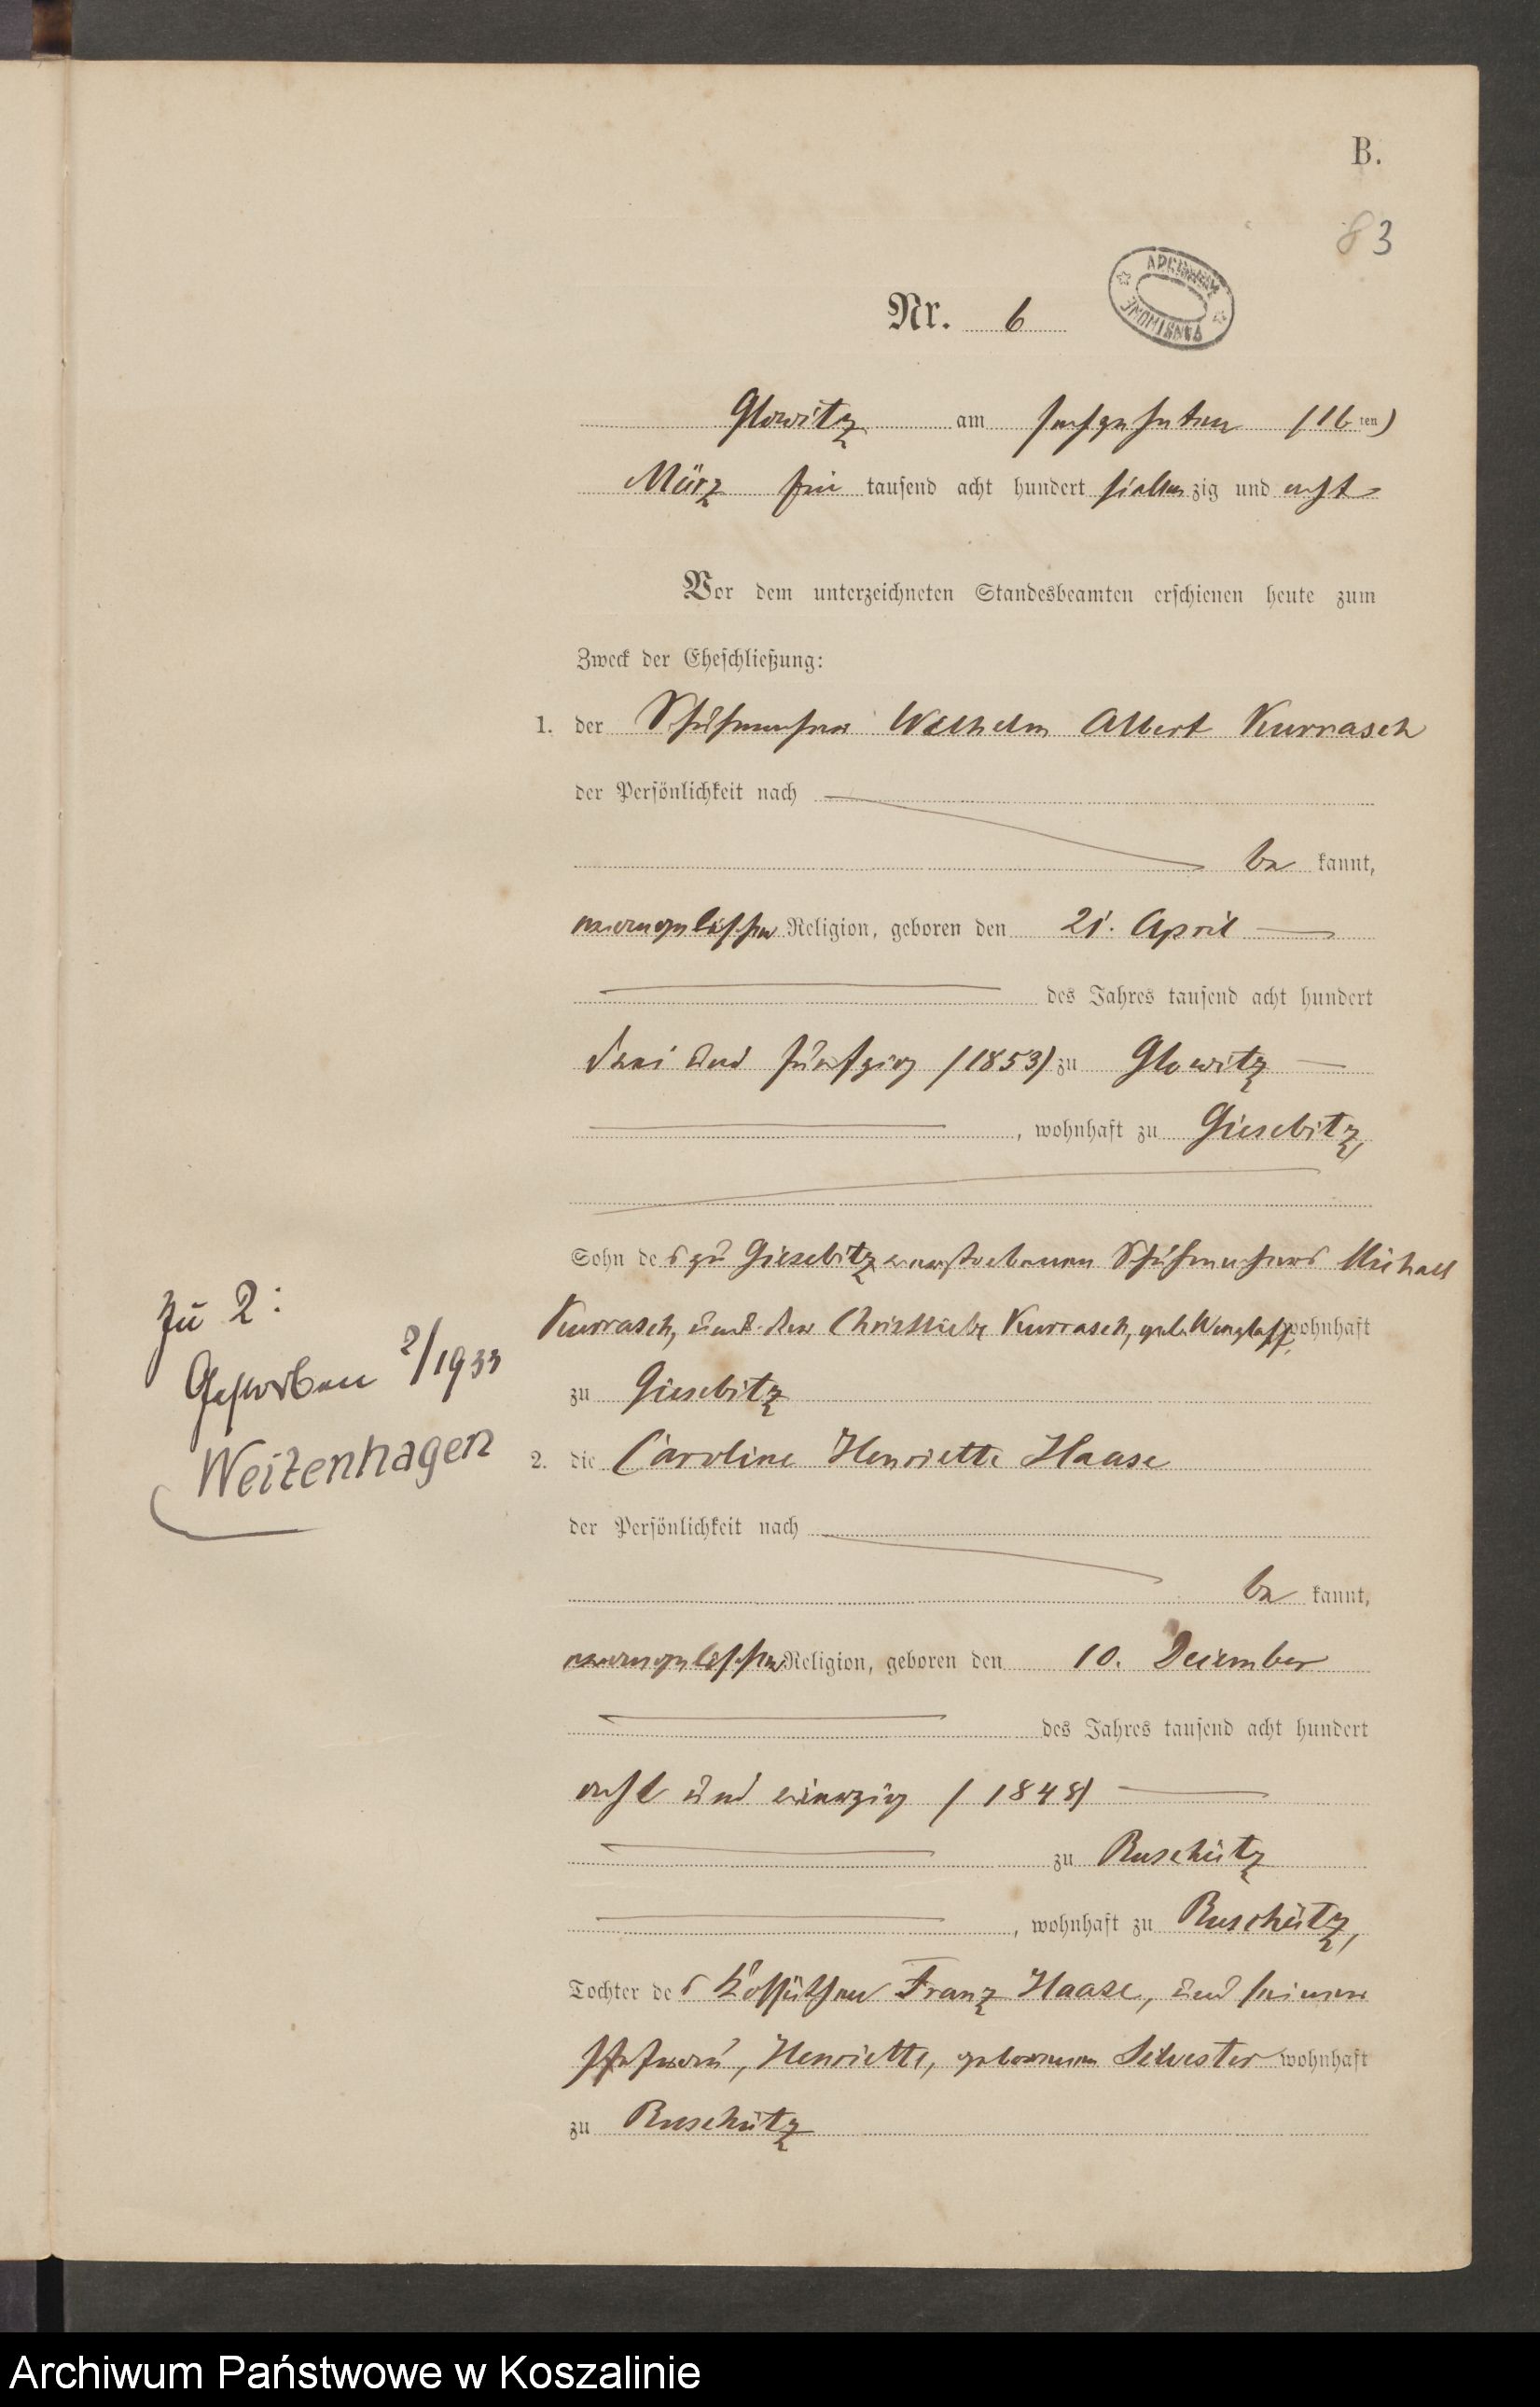 B.
83
Nr. 6
ARCHIWUM PAŃSTWOWE
Glowitz am sechzehnten (16ten)
März ein tausend acht hundert siebenzig und acht
Vor dem unterzeichneten Standesbeamten erschienen heute zum
Zweck der Eheschließung:
1. der Schuhmacher Wilhelm Albert Kurrasch
der Persönlichkeit nach
be kannt,
evangelischer Religion, geboren den 21. April
des Jahres tausend acht hundert
drei und fünfzig (1853) zu Glowitz
, wohnhaft zu Giesebitz,
Sohn des zu Giesebitz verstorbenen Schuhmachers Michael
Kurrasch, und der Christliebe Kurrasch, geb. wohnhaft
zu Giesebitz
2. die Caroline Henriette Haase
der Persönlichkeit nach
be kannt,
evangelischer Religion, geboren den 10. Dezember
des Jahres tausend acht hundert
acht und vierzig (1848)
zu Ruschütz
, wohnhaft zu Ruschütz,
Tochter des Kossäthen Franz Haase, und seiner
Ehefrau, Henriette, geborenen Silvester wohnhaft
zu Ruschütz
Zu 2:
Gestorben 2/1933
Weitenhagen
Archiwum Państwowe w Koszalinie